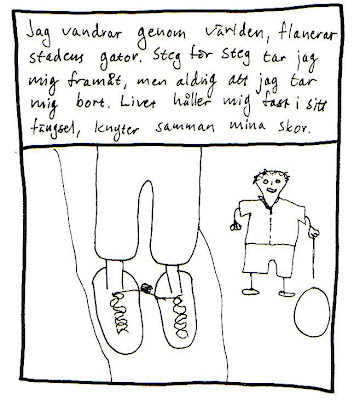 Jag vandrar genom världen, flanerar
stadens gator. Steg för steg tar jag
mig framåt, men aldrig att jag tar
mig bort. Livet håller mig fast i sitt
fängsel, knyter samman mina skor.